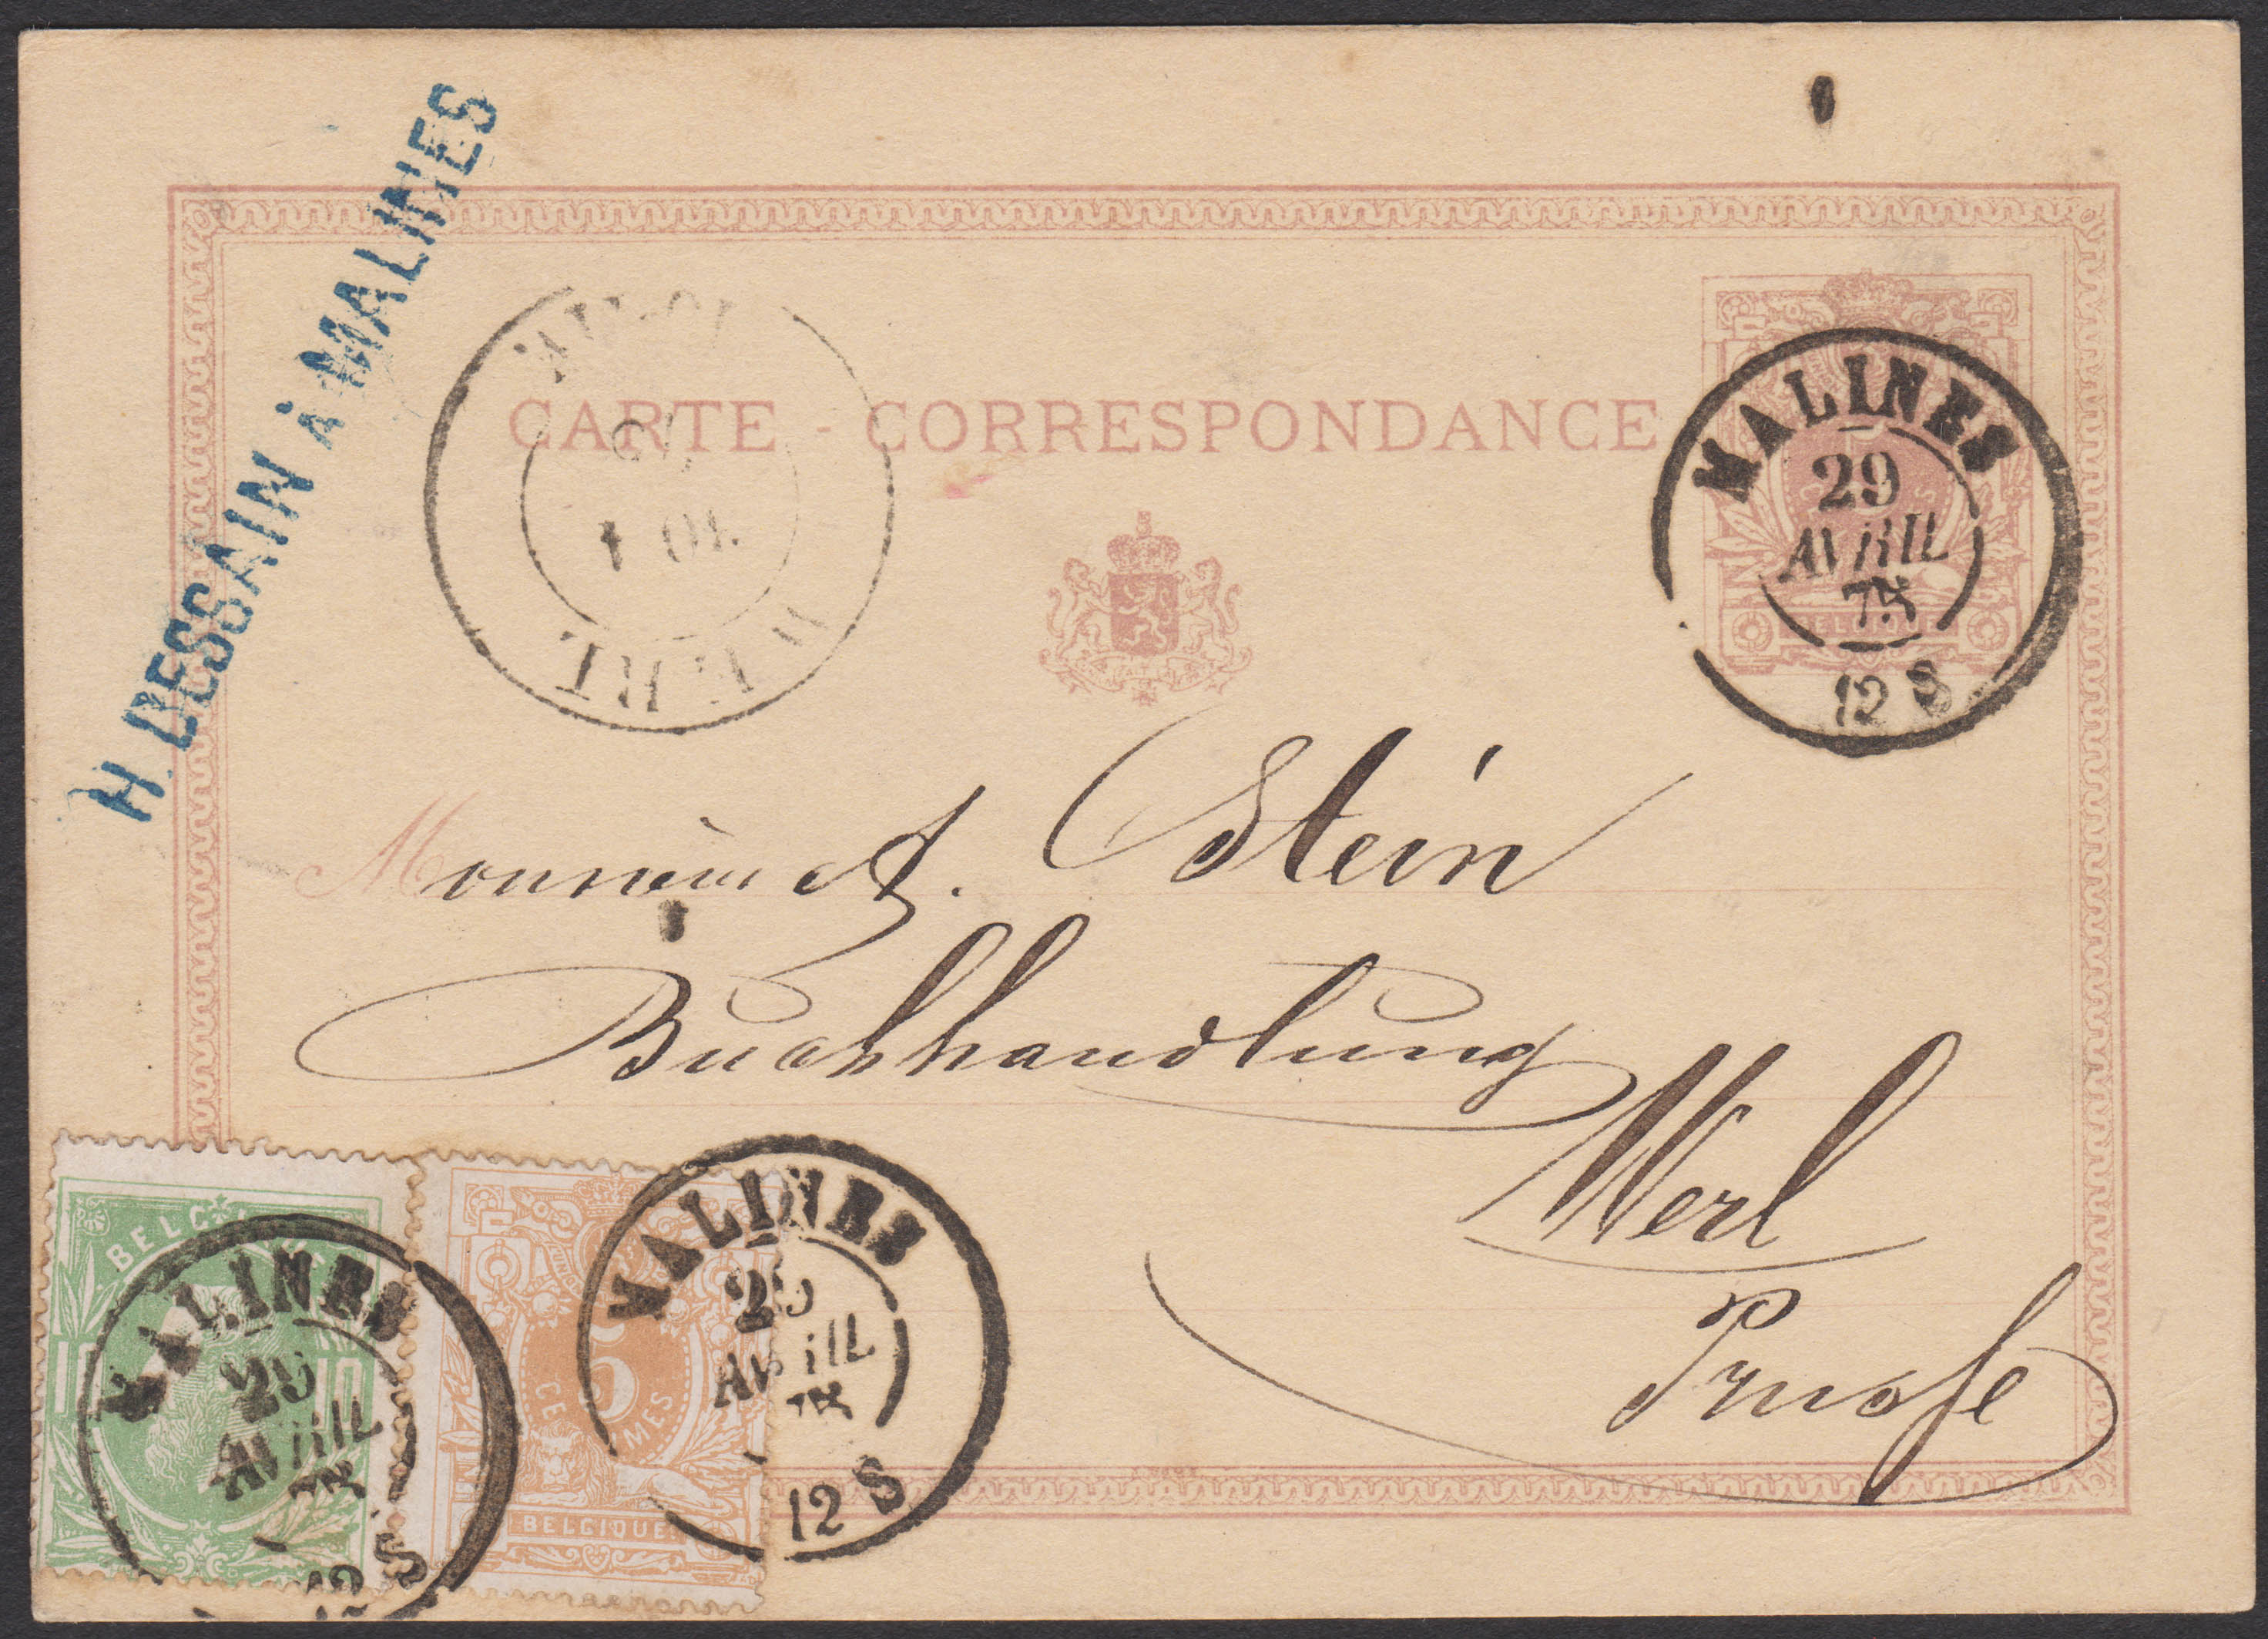 H. DESSAIN à MALINES
CARTE - CORRESPONDANCE
MALINES
29
AVRIL
75
12 S
BELGIQUE
WERL
Monsieur A. Stein
Buchhandlung
Werl
Prusse
10 10
MALINES
29
AVRIL
75
12 S
5
CENTIMES
BELGIQUE
MALINES
29
AVRIL
75
12 S